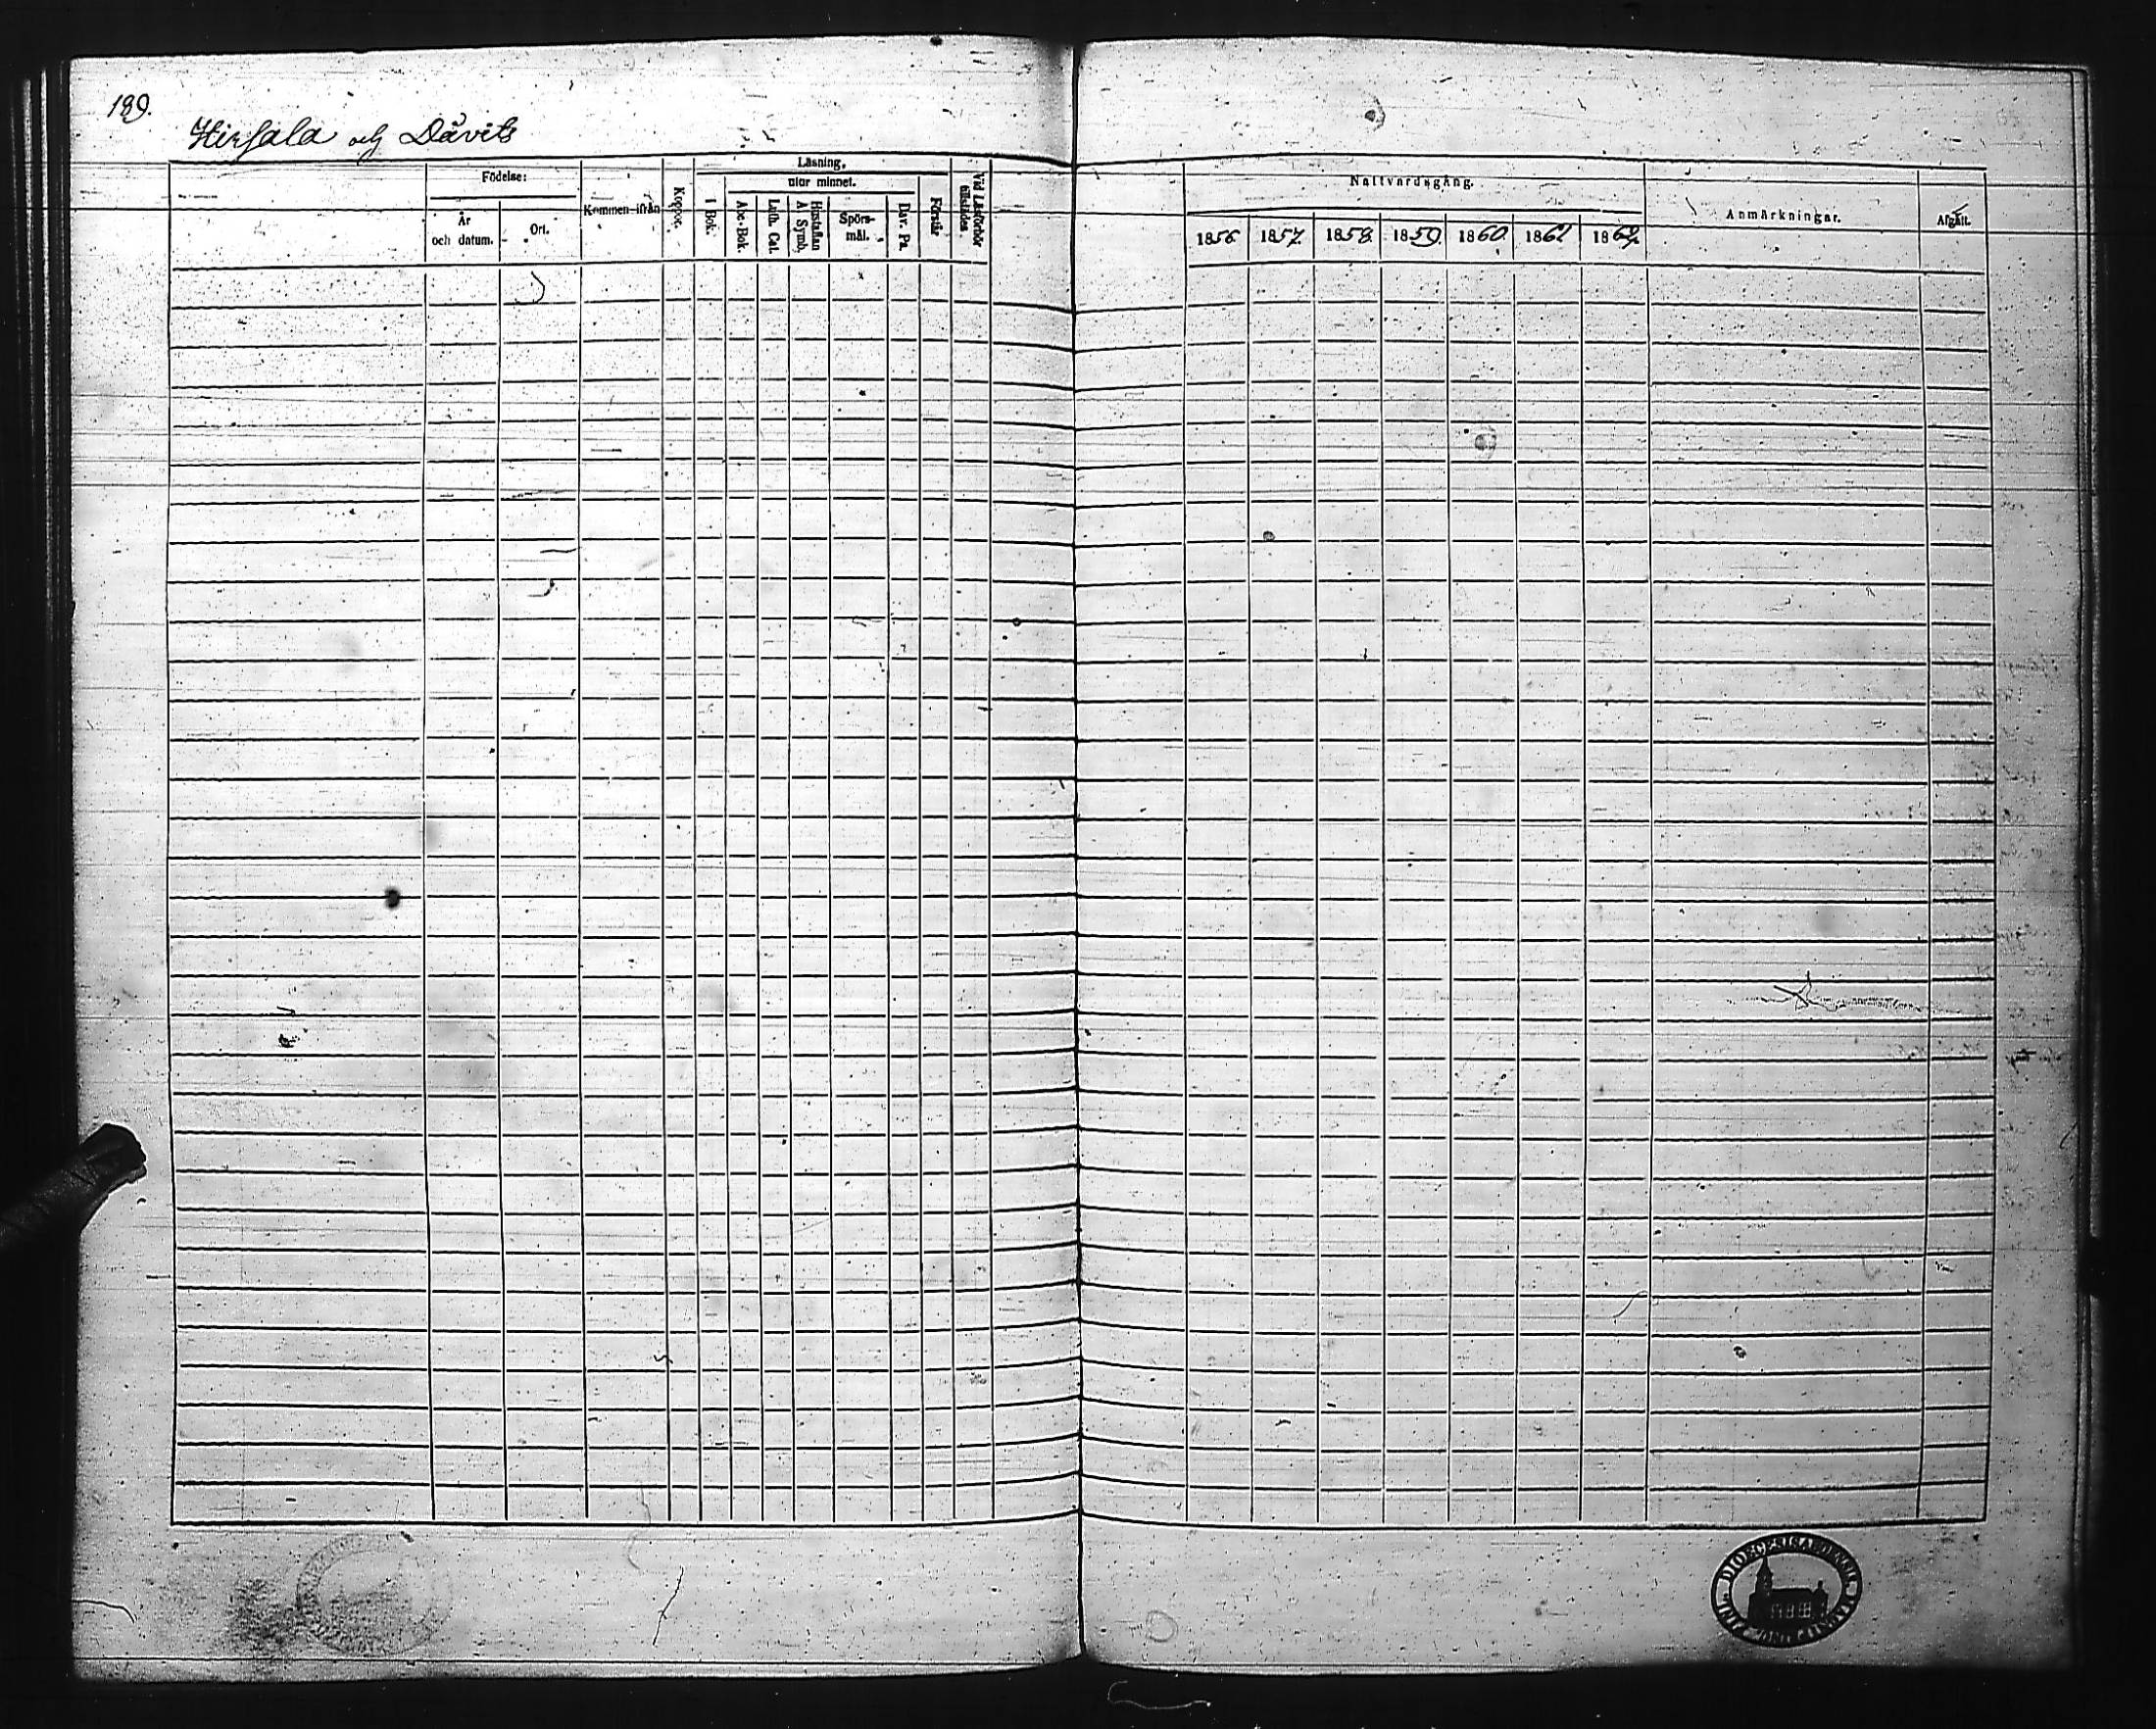 189.
Hirsala och Dävits
Födelse:
År och datum.
Ort.
Kommen ifrån
Koppor.
Läsning,
utur minnet.
I Bok.
Abc-Bok.
Luth. Cat.
Hustaflan A Symb.
Spörs-mål.
Dav. Ps.
Förstår
Vid Läsförhör tillstädes.
Nattvardsgång.
1856 1857. 1858. 1859. 1860. 1861
Anmärkningar.
Afgått.